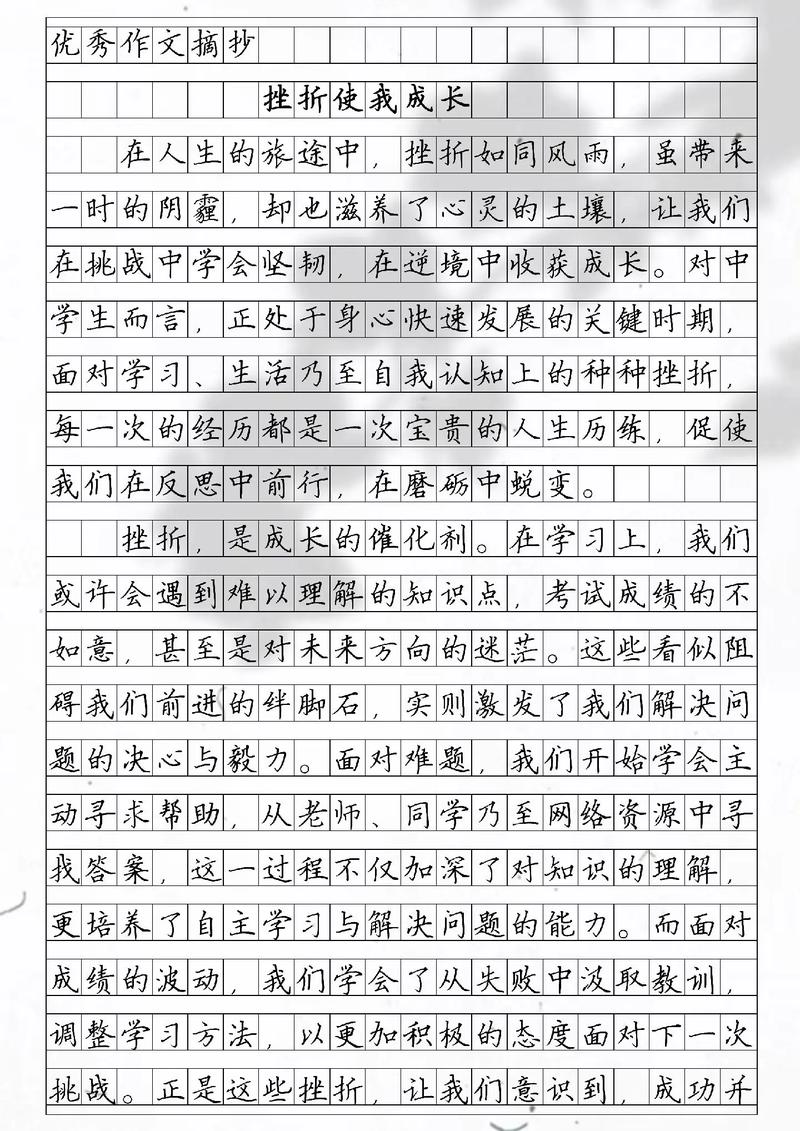 优秀作文摘抄
挫折使我成长
在人生的旅途中，挫折如同风雨，虽带来
一时的阴霾，却也滋养了心灵的土壤，让我们
在挑战中学会坚韧，在逆境中收获成长。对中
学生而言，正处于身心快速发展的关键时期，
面对学习、生活乃至自我认知上的种种挫折，
每一次的经历都是一次宝贵的人生历练，促使
我们在反思中前行，在磨砺中蜕变。
挫折，是成长的催化剂。在学习上，我们
或许会遇到难以理解的知识点，考试成绩的不
如意，甚至是对未来方向的迷茫。这些看似阻
碍我们前进的绊脚石，实则激发了我们解决问
题的决心与毅力。面对难题，我们开始学会主
动寻求帮助，从老师、同学乃至网络资源中寻
找答案，这一过程不仅加深了对知识的理解，
更培养了自主学习与解决问题的能力。而面对
成绩的波动，我们学会了从失败中汲取教训，
调整学习方法，以更加积极的态度面对下一次
挑战。正是这些挫折，让我们意识到，成功并